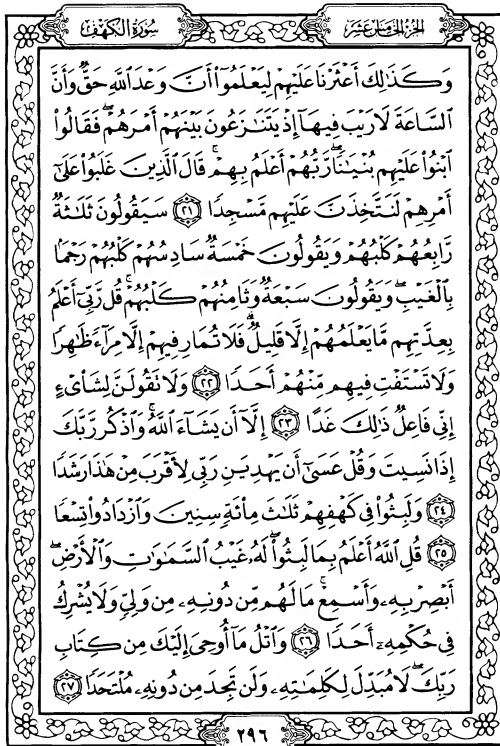 الجزء الخامس عشر
سورة الكهف
وَكَذَٰلِكَ أَعْثَرْنَا عَلَيْهِمْ لِيَعْلَمُوٓا۟ أَنَّ وَعْدَ ٱللَّهِ حَقٌّ وَأَنَّ
ٱلسَّاعَةَ لَا رَيْبَ فِيهَآ إِذْ يَتَنَٰزَعُونَ بَيْنَهُمْ أَمْرَهُمْ ۖ فَقَالُوا۟
ٱبْنُوا۟ عَلَيْهِم بُنْيَٰنًا ۖ رَّبُّهُمْ أَعْلَمُ بِهِمْ ۚ قَالَ ٱلَّذِينَ غَلَبُوا۟ عَلَىٰٓ
أَمْرِهِمْ لَنَتَّخِذَنَّ عَلَيْهِم مَّسْجِدًا ٢١ سَيَقُولُونَ ثَلَٰثَةٌ
رَّابِعُهُمْ كَلْبُهُمْ وَيَقُولُونَ خَمْسَةٌ سَادِسُهُمْ كَلْبُهُمْ رَجْمًۢا
بِٱلْغَيْبِ ۖ وَيَقُولُونَ سَبْعَةٌ وَثَامِنُهُمْ كَلْبُهُمْ ۚ قُل رَّبِّىٓ أَعْلَمُ
بِعِدَّتِهِم مَّا يَعْلَمُهُمْ إِلَّا قَلِيلٌ ۗ فَلَا تُمَارِ فِيهِمْ إِلَّا مِرَآءً ظَٰهِرًا
وَلَا تَسْتَفْتِ فِيهِم مِّنْهُمْ أَحَدًا ٢٢ وَلَا تَقُولَنَّ لِشَا۟ىْءٍ
إِنِّى فَاعِلٌ ذَٰلِكَ غَدًا ٢٣ إِلَّآ أَن يَشَآءَ ٱللَّهُ ۚ وَٱذْكُر رَّبَّكَ
إِذَا نَسِيتَ وَقُلْ عَسَىٰٓ أَن يَهْدِيَنِ رَبِّى لِأَقْرَبَ مِنْ هَٰذَا رَشَدًا
٢٤ وَلَبِثُوا۟ فِى كَهْفِهِمْ ثَلَٰثَ مِا۟ئَةٍ سِنِينَ وَٱزْدَادُوا۟ تِسْعًا
٢٥ قُلِ ٱللَّهُ أَعْلَمُ بِمَا لَبِثُوا۟ ۖ لَهُۥ غَيْبُ ٱلسَّمَٰوَٰتِ وَٱلْأَرْضِ ۖ
أَبْصِرْ بِهِۦ وَأَسْمِعْ ۚ مَا لَهُم مِّن دُونِهِۦ مِن وَلِىٍّ وَلَا يُشْرِكُ
فِى حُكْمِهِۦٓ أَحَدًا ٢٦ وَٱتْلُ مَآ أُوحِىَ إِلَيْكَ مِن كِتَابِ
رَبِّكَ ۖ لَا مُبَدِّلَ لِكَلِمَٰتِهِۦ وَلَن تَجِدَ مِن دُونِهِۦ مُلْتَحَدًا ٢٧
٢٩٦